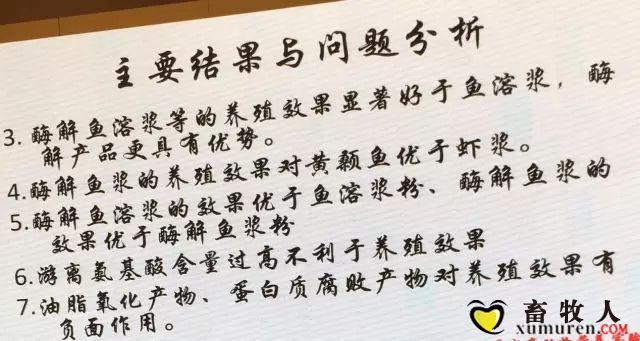 主要结果与问题分析
3. 酶解鱼溶浆等的养殖效果显著好于鱼溶浆，酶
解产品更具有优势。
4. 酶解鱼浆的养殖效果对黄颡鱼优于虾浆。
5. 酶解鱼溶浆的效果优于鱼溶浆粉、酶解鱼浆的
效果优于酶解鱼浆粉
6. 游离氨基酸含量过高不利于养殖效果
7. 油脂氧化产物、蛋白质腐败产物对养殖效果有
负面作用。
畜牧人
xumuren.com